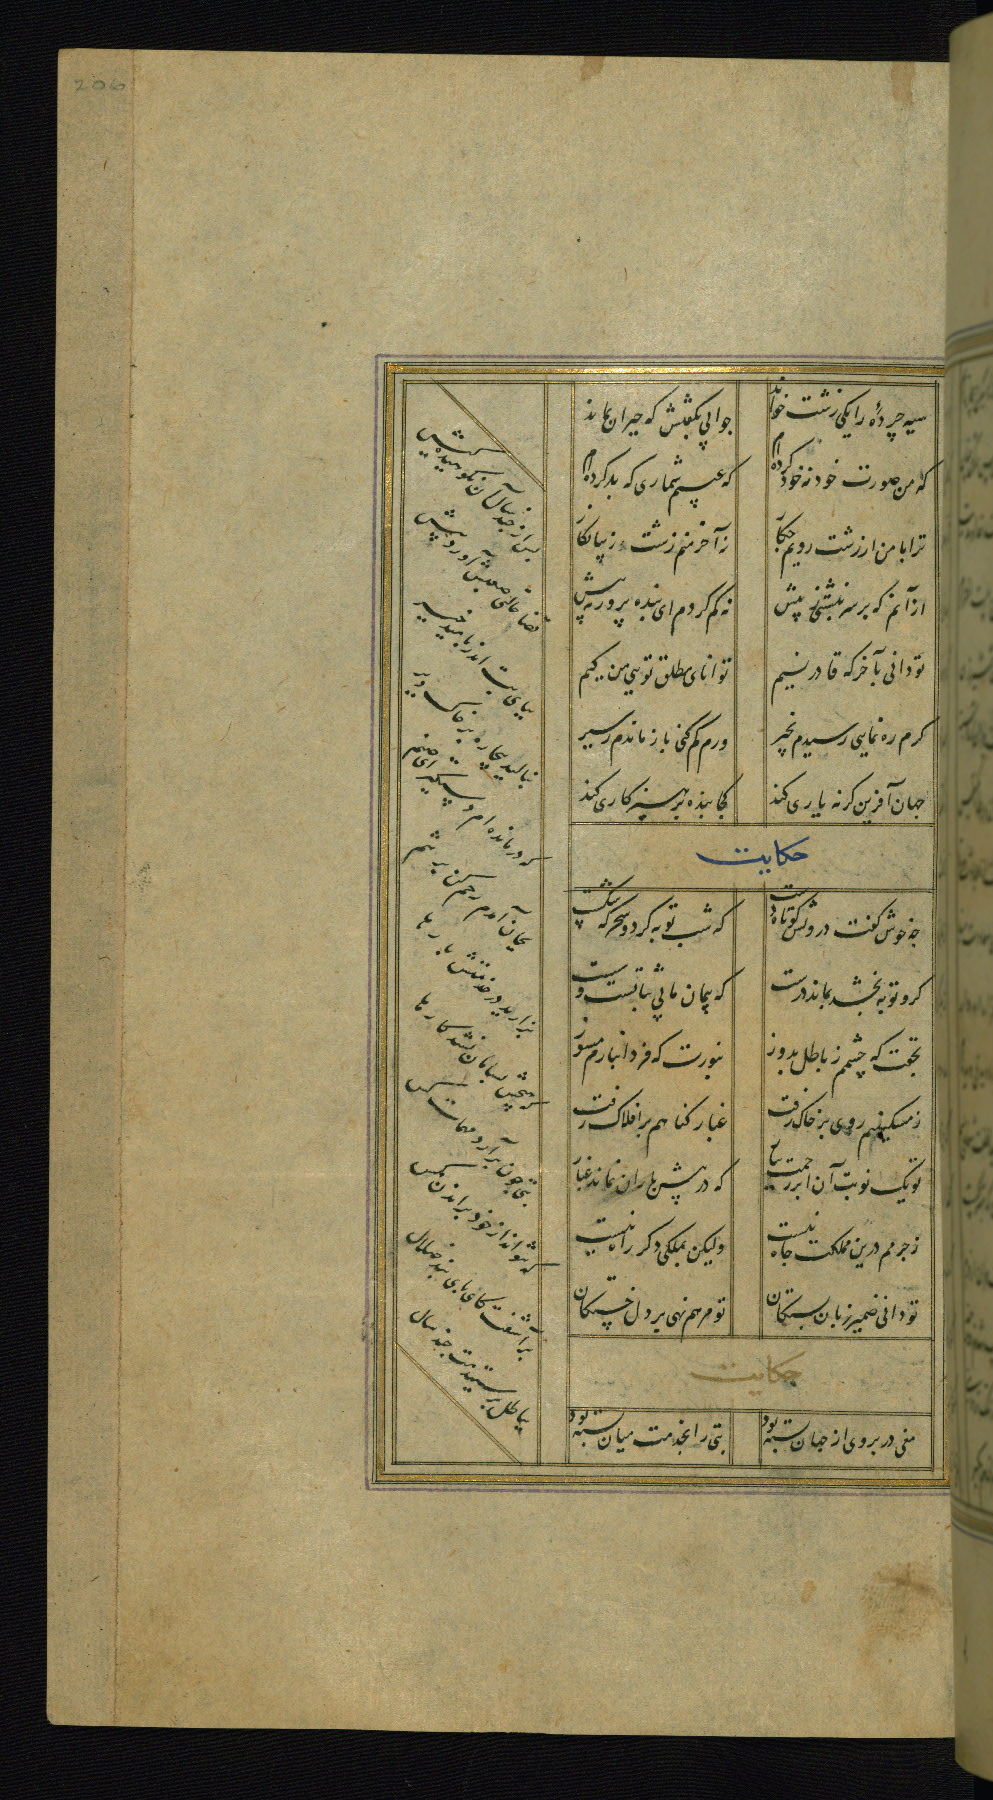 206
سیه چرده‌ٔ را یکی زشت خواند
جوابی بگفتش که حیران بماند
که من صورت خود نه خود کرده‌ام
که عیبم شماری که بد کرده‌ام
ترا با من ار زشت رویم چکار
نه آخر منم زشت و زیبا نگار
از آنم که بر سر نبشتی ز پیش
نه کم کردم ای بنده پرور نه بیش
تو دانی بآخر که قادر نیم
توانای مطلق تویی من کیم
گرم ره نمایی رسیدم بخیر
ورم گم کنی باز ماندم ز سیر
جهان آفرین گر نه یاری کند
کجا بنده پرهیزکاری کند
حکایت
چه خوش گفت درویش کوتاه دست
که شب توبه کرد و سحرگه شکست
گر او توبه بخشد بماند درست
که پیمان ما بی ثباتست و سست
بحقت که چشمم ز باطل بدوز
بنورت که فردا بنارم مسوز
ز مسکینیم روی بر خاک رفت
غبار گناهم بر افلاک رفت
تو یک نوبت ای ابر رحمت ببار
که در پیش باران نماند غبار
ز جرمم درین مملکت جاه نیست
ولیکن بملکی دگر راه نیست
تو دانی ضمیر زبان بستگان
تو مرهم نهی بر دل خستگان
حکایت
مغی در بروی از جهان بسته بود
بتی را بخدمت میان بسته بود
پس از چند سال آن نکوهیده کیش
قضا حالتی صعبش آورد پیش
بپای بت اندر بامید خیر
بنالید بیچاره بر خاک دیر
که درمانده‌ام دستگیر ای صنم
بجان آمدم رحم کن بر تنم
بزارید در خدمتش بارها
که هیچش بسامان نشد کارها
بتی چون برآرد مهمات کس
که نتواند از خود براندن مگس
برآشفت کای پای بند ضلال
بباطل پرستیدمت چند سال